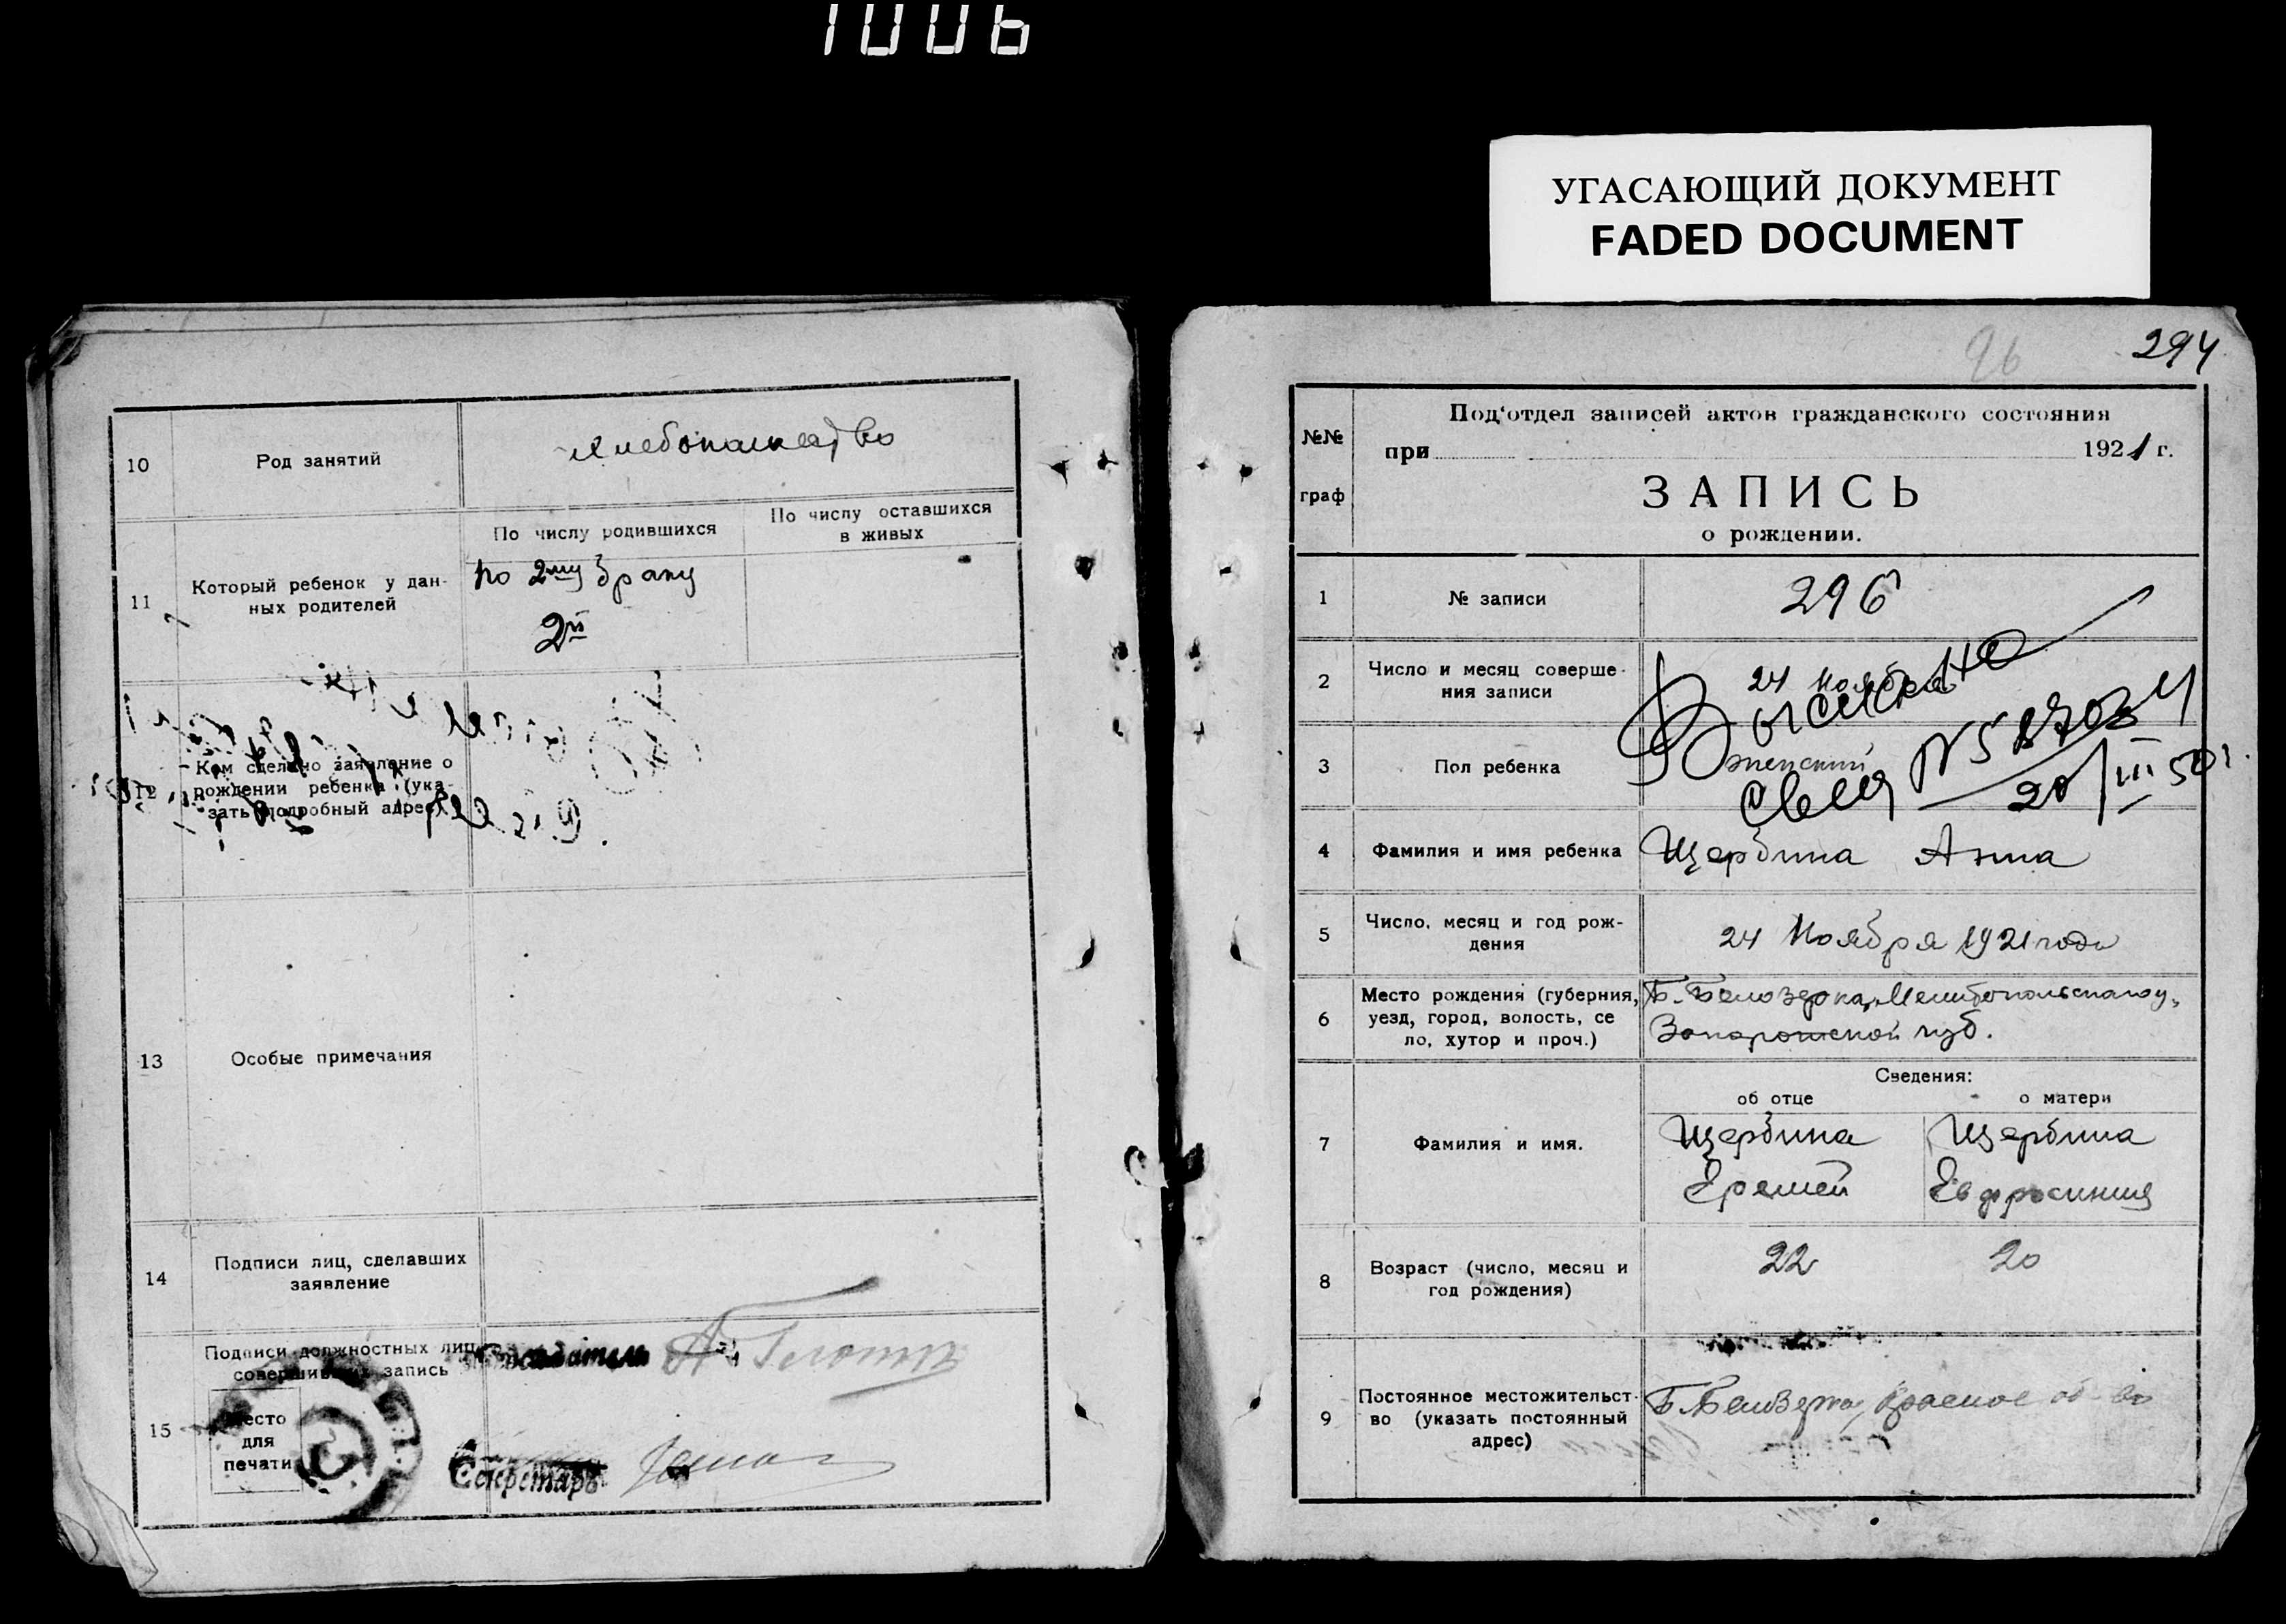 1006
УГАСАЮЩИЙ ДОКУМЕНТ
FADED DOCUMENT
10
Род занятий
хлебопашество
11
Который ребенок у дан-
ных родителей
По числу родившихся
По числу оставшихся
в живых
по 2му браку
2й
12
Кем сделано заявление о
рождении ребенка (ука-
зать подробный адрес)
13
Особые примечания
14
Подписи лиц, сделавших
заявление
15
Подписи должностных лиц,
совершивших запись
Место
для
печати
Секретарь
96
294
№№
граф
Под'отдел записей актов гражданского состояния
при 1921 г.
ЗАПИСЬ
о рождении.
1
№ записи
296
2
Число и месяц соверше-
ния записи
24 Ноября
Выслано
3
Пол ребенка
женский
20/III 50 г.
4
Фамилия и имя ребенка
Щербина Анна
5
Число, месяц и год рож-
дения
24 Ноября 1921 года
6
Место рождения (губерния,
уезд, город, волость, се
ло, хутор и проч.)
Б.-Белозерка, Мелитопольского у.,
Запорожской губ.
Сведения:
об отце
о матери
7
Фамилия и имя.
Щербина
Еремей
Щербина
Евфросиния
8
Возраст (число, месяц и
год рождения)
22
20
9
Постоянное местожительст-
во (указать постоянный
адрес)
Б.Белозерка, Красное об-во